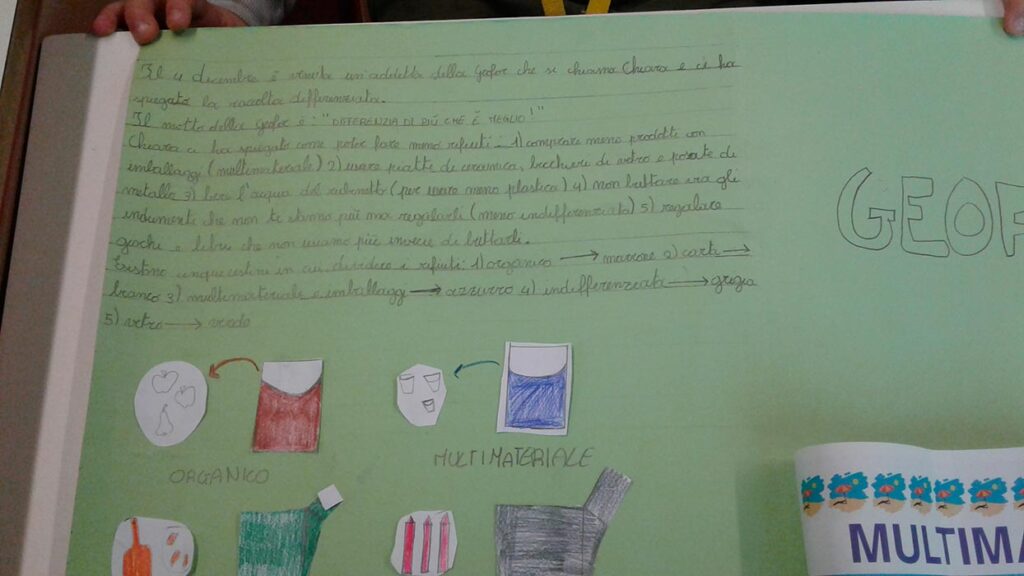 Il 4 dicembre è venuta un'addetta della Geofor che si chiama Chiara e ci ha
spiegato la raccolta differenziata.
Il motto della Geofor è: "DIFFERENZIA DI PIÙ CHE È MEGLIO!"
Chiara ci ha spiegato come poter fare meno rifiuti: 1) comprare meno prodotti con
imballaggi (multimateriale) 2) usare piatti di ceramica, bicchieri di vetro e posate di
metallo 3) bere l'acqua del rubinetto (per usare meno plastica) 4) non buttare via gli
indumenti che non ti stanno più ma regalarli (meno indifferenziato) 5) regalare
giochi e libri che non usiamo più invece di buttarli.
Esistono cinque cestini in cui dividere i rifiuti: 1) organico → marrone 2) carta →
bianco 3) multimateriale e imballaggi → azzurro 4) indifferenziata → grigio
5) vetro → verde
GEOF
ORGANICO
MULTIMATERIALE
MULTIMA